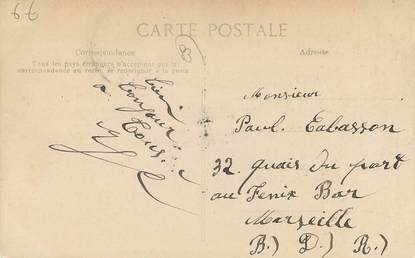 66
CARTE POSTALE
8
Correspondance
Tous les pays étrangers n'acceptent pas la
correspondance au recto, se renseigner à la poste
Adresse
bonjour
à Tous
Monsieur
Paul Cabasson
32 quais du port
au Fenix Bar
Marseille
B.) D.) R.)